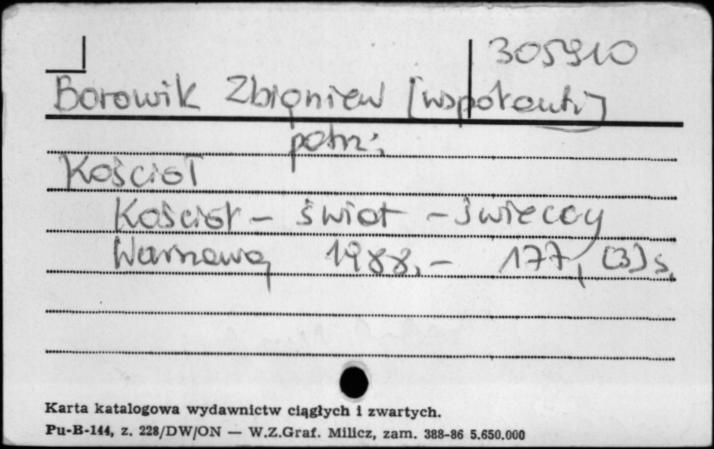 305910
Borowik Zbigniew [współaut.]
patrz:
Kościół
Kościół - świat - świeccy
Warszawa, 1988, - 177, [3] s.
Karta katalogowa wydawnictw ciągłych i zwartych.
Pu-B-144, z. 228/DW/ON — W.Z.Graf. Milicz, zam. 388-86 5.650.000